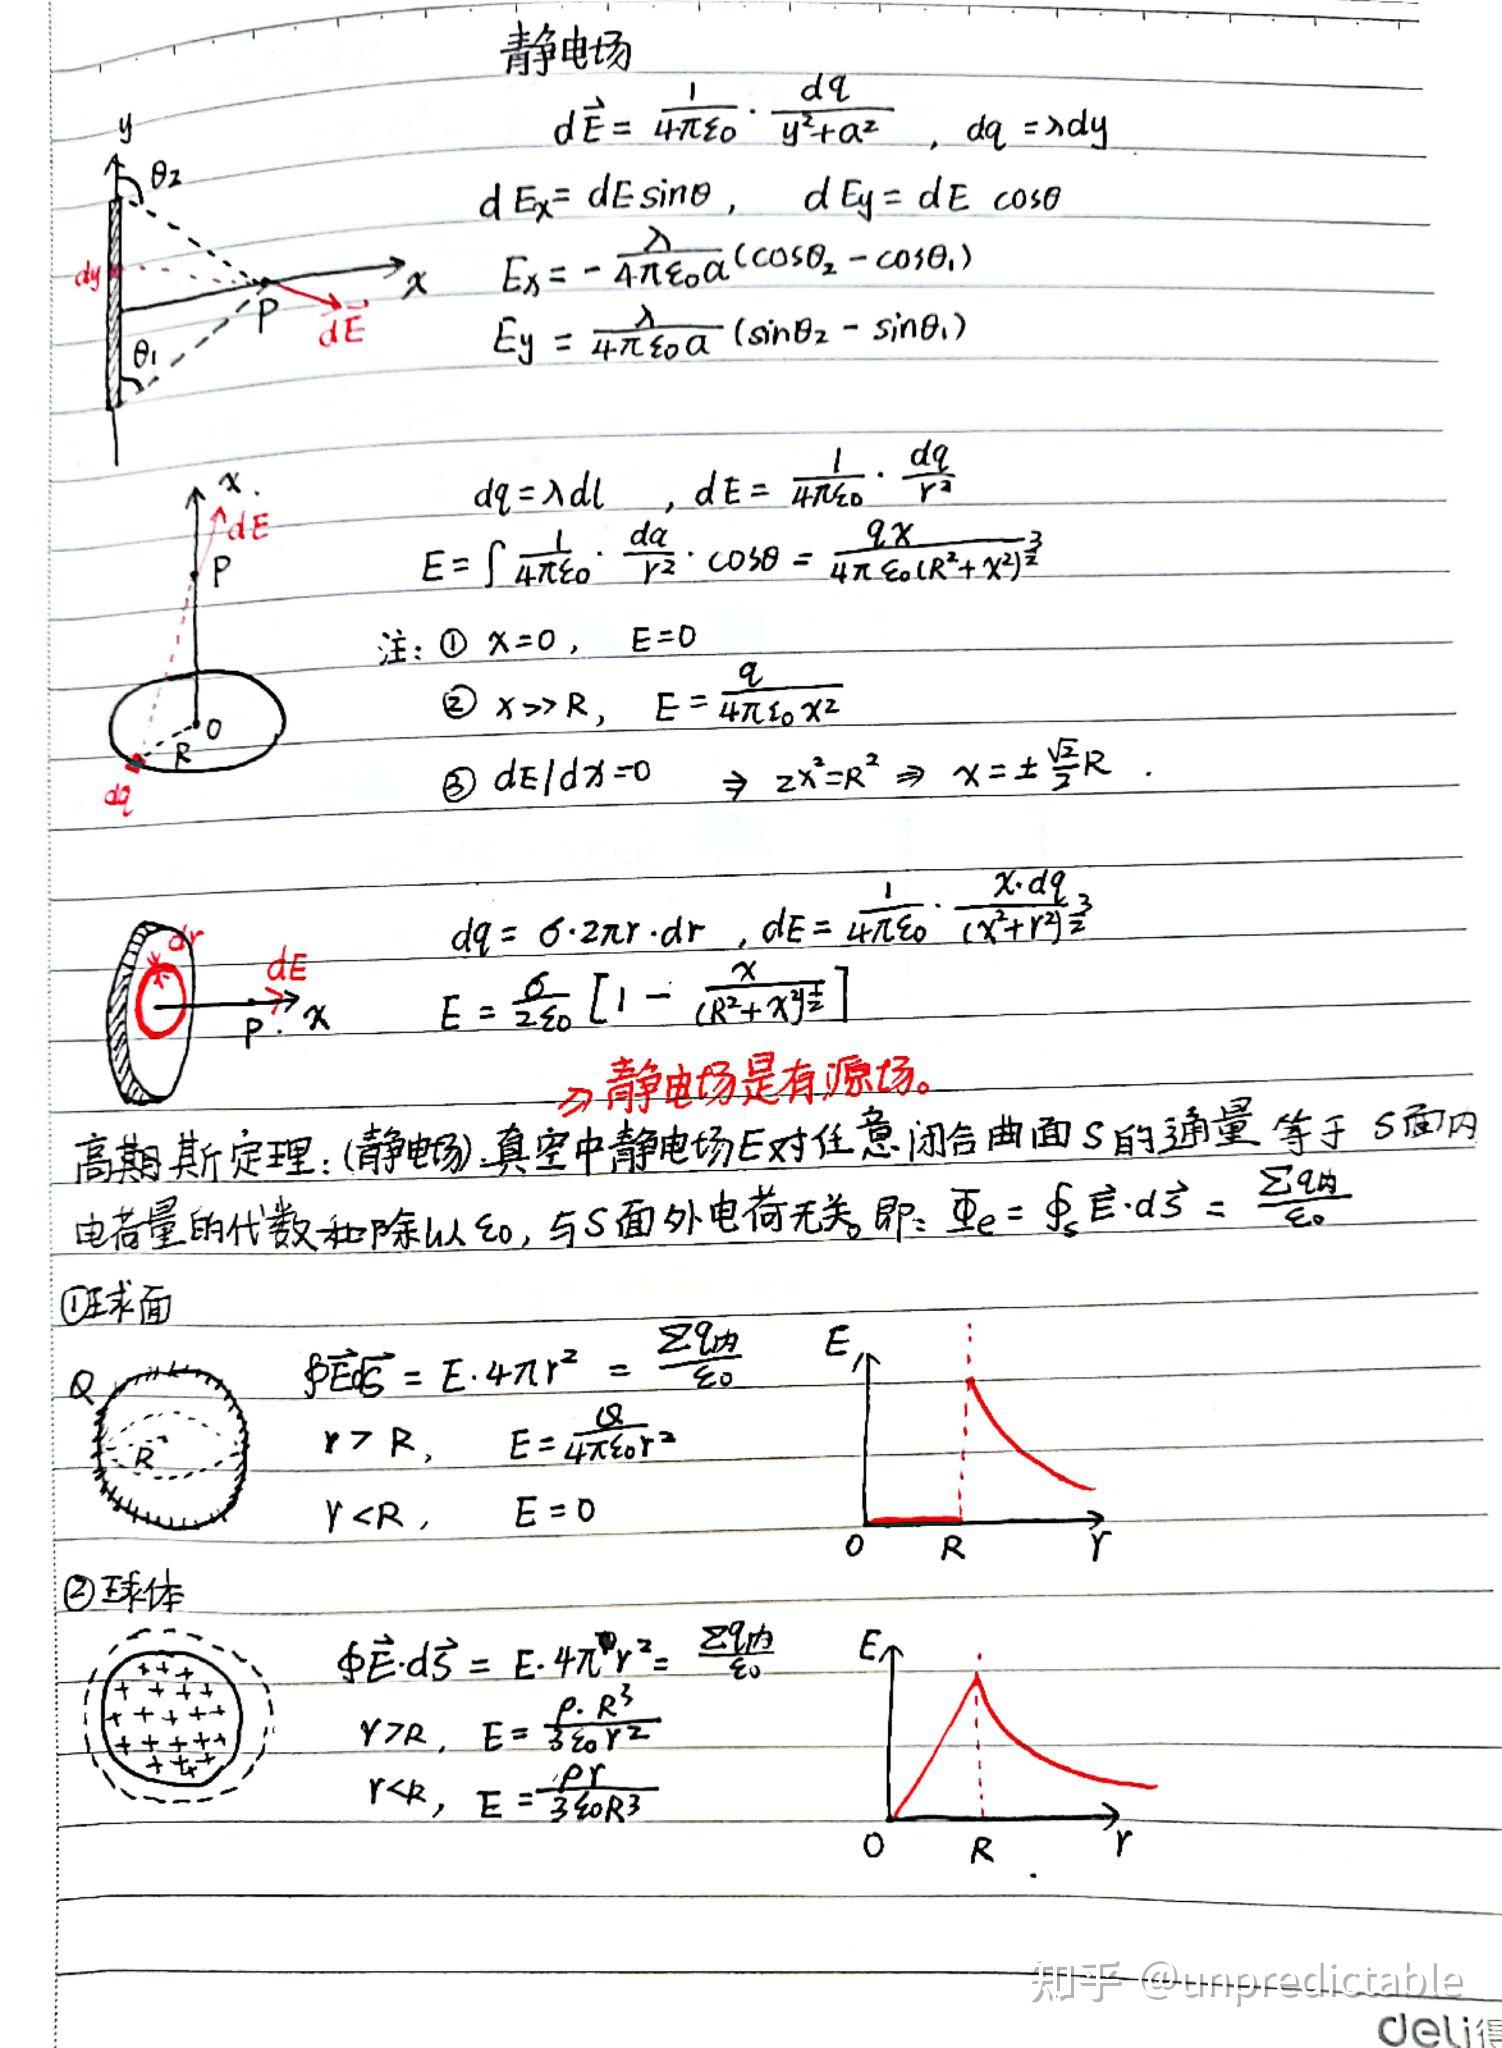 静电场
dE⃗ = 1/4πε₀ · dq/y²+a² , dq = λdy
y
θ₂
dEₓ = dE sinθ, dEy = dE cosθ
dy
Eₓ = - λ/4πε₀a (cosθ₂ - cosθ₁)
x
P
dE⃗
θ₁
Ey = λ/4πε₀a (sinθ₂ - sinθ₁)
x.
dq = λdl , dE = 1/4πε₀ · dq/r²
dE
P
E = ∫ 1/4πε₀ · dq/r² · cosθ = qx/4πε₀(R²+x²)^3/2
注: ① x=0, E=0
② x>>R, E = q/4πε₀x²
O
R
dq
③ dE/dx=0 ⇒ 2x²=R² ⇒ x = ± √2/2 R .
dq = σ·2πr·dr , dE = 1/4πε₀ · x·dq/(x²+r²)^3/2
dr
dE
P. x
E = σ/2ε₀ [1 - x/(R²+x²)^1/2]
⇒ 静电场是有源场。
高斯定理: (静电场).真空中静电场E对任意闭合曲面S的通量等于S面内
电荷量的代数和除以ε₀, 与S面外电荷无关。即: Φe = ∮s E⃗·dS⃗ = Σq内/ε₀
①球面
Q
R
∮E⃗dS⃗ = E·4πr² = Σq内/ε₀
r > R, E = Q/4πε₀r²
r < R, E = 0
E
O R r
②球体
∮E⃗·dS⃗ = E·4πr² = Σq内/ε₀
r>R, E = ρ·R³/3ε₀r²
r<R, E = ρr/3ε₀R³
E
O R r
知乎 @unpredictable
deli得